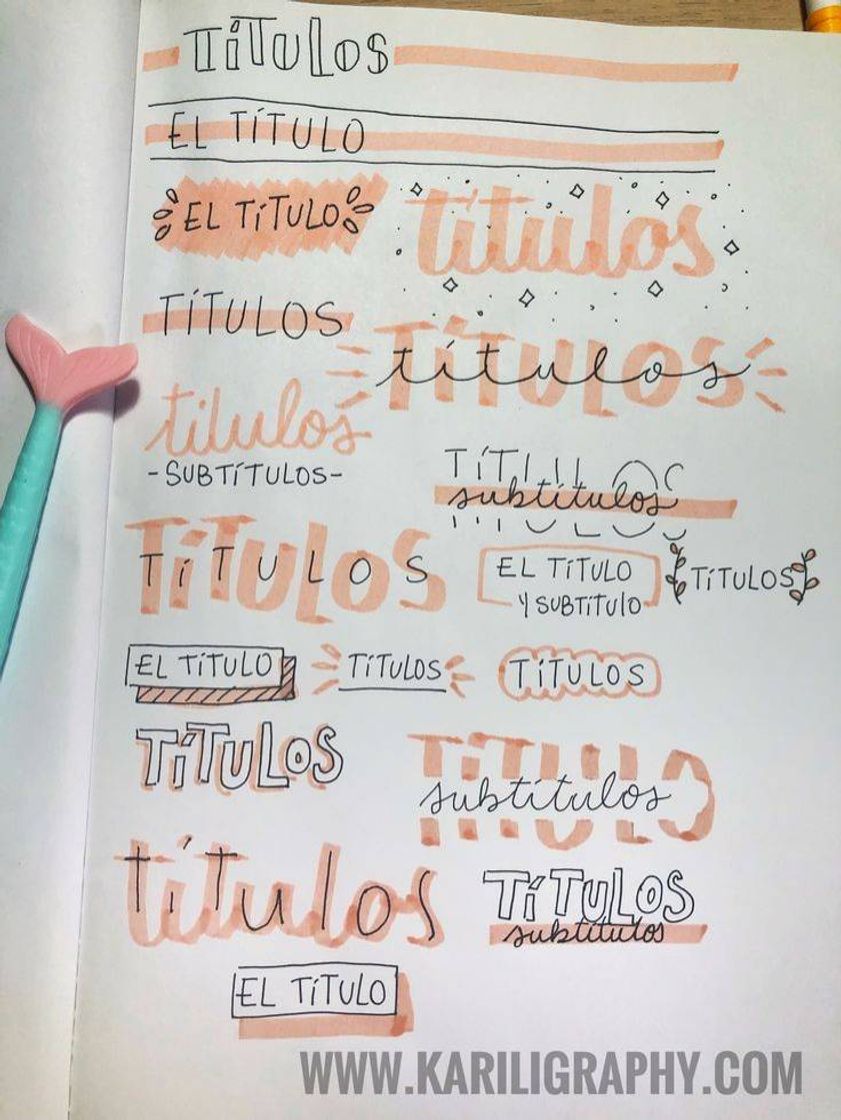 TÍTULOS
EL TÍTULO
EL TÍTULO
títulos
TÍTULOS
TÍTULOS
títulos
títulos
-SUBTÍTULOS-
TÍTULOS
subtítulos
TÍTULOS
TÍTULOS
EL TÍTULO
Y SUBTÍTULO
TÍTULOS
EL TÍTULO
TÍTULOS
TÍTULOS
TÍTULOS
TÍTULO
subtítulos
títulos
títulos
TÍTULOS
subtítulos
EL TÍTULO
WWW.KARILIGRAPHY.COM